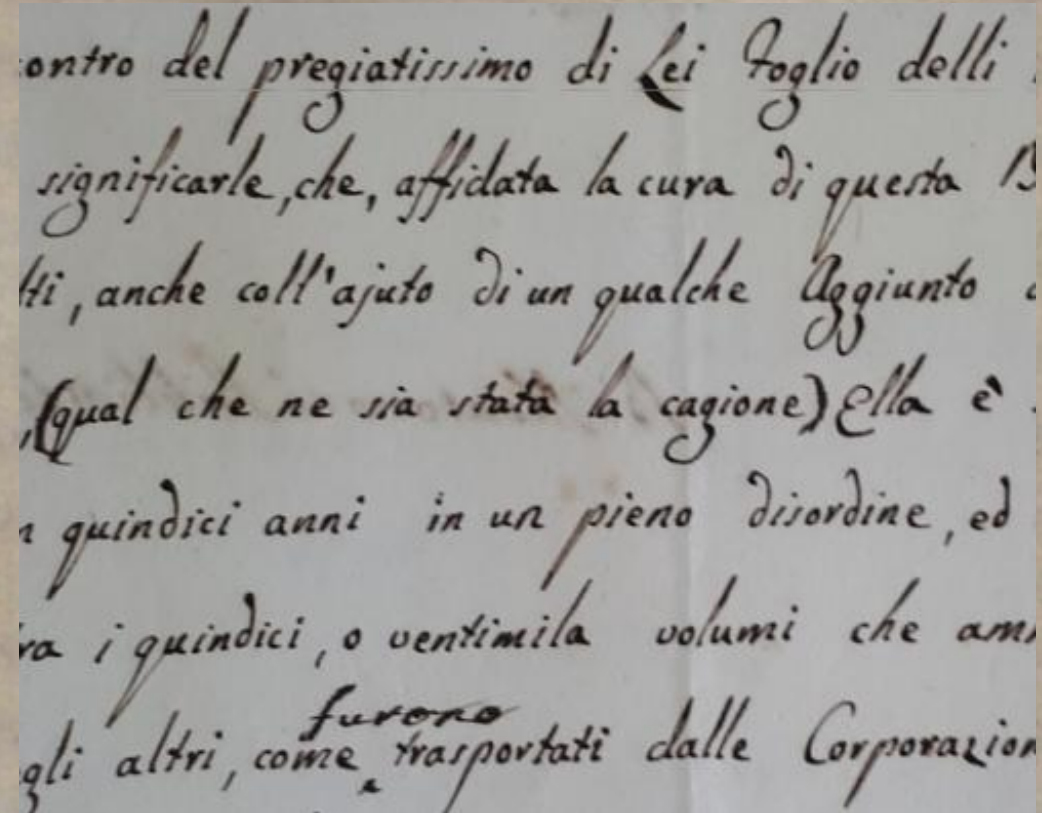 ontro del pregiatissimo di Lei Foglio delli
significarle, che, affidata la cura di questa B
tti, anche coll'ajuto di un qualche Aggiunto
, (qual che ne sia stata la cagione) Ella è
n quindici anni in un pieno disordine, ed
ra i quindici, o ventimila volumi che am
furono
gli altri, come trasportati dalle Corporazion